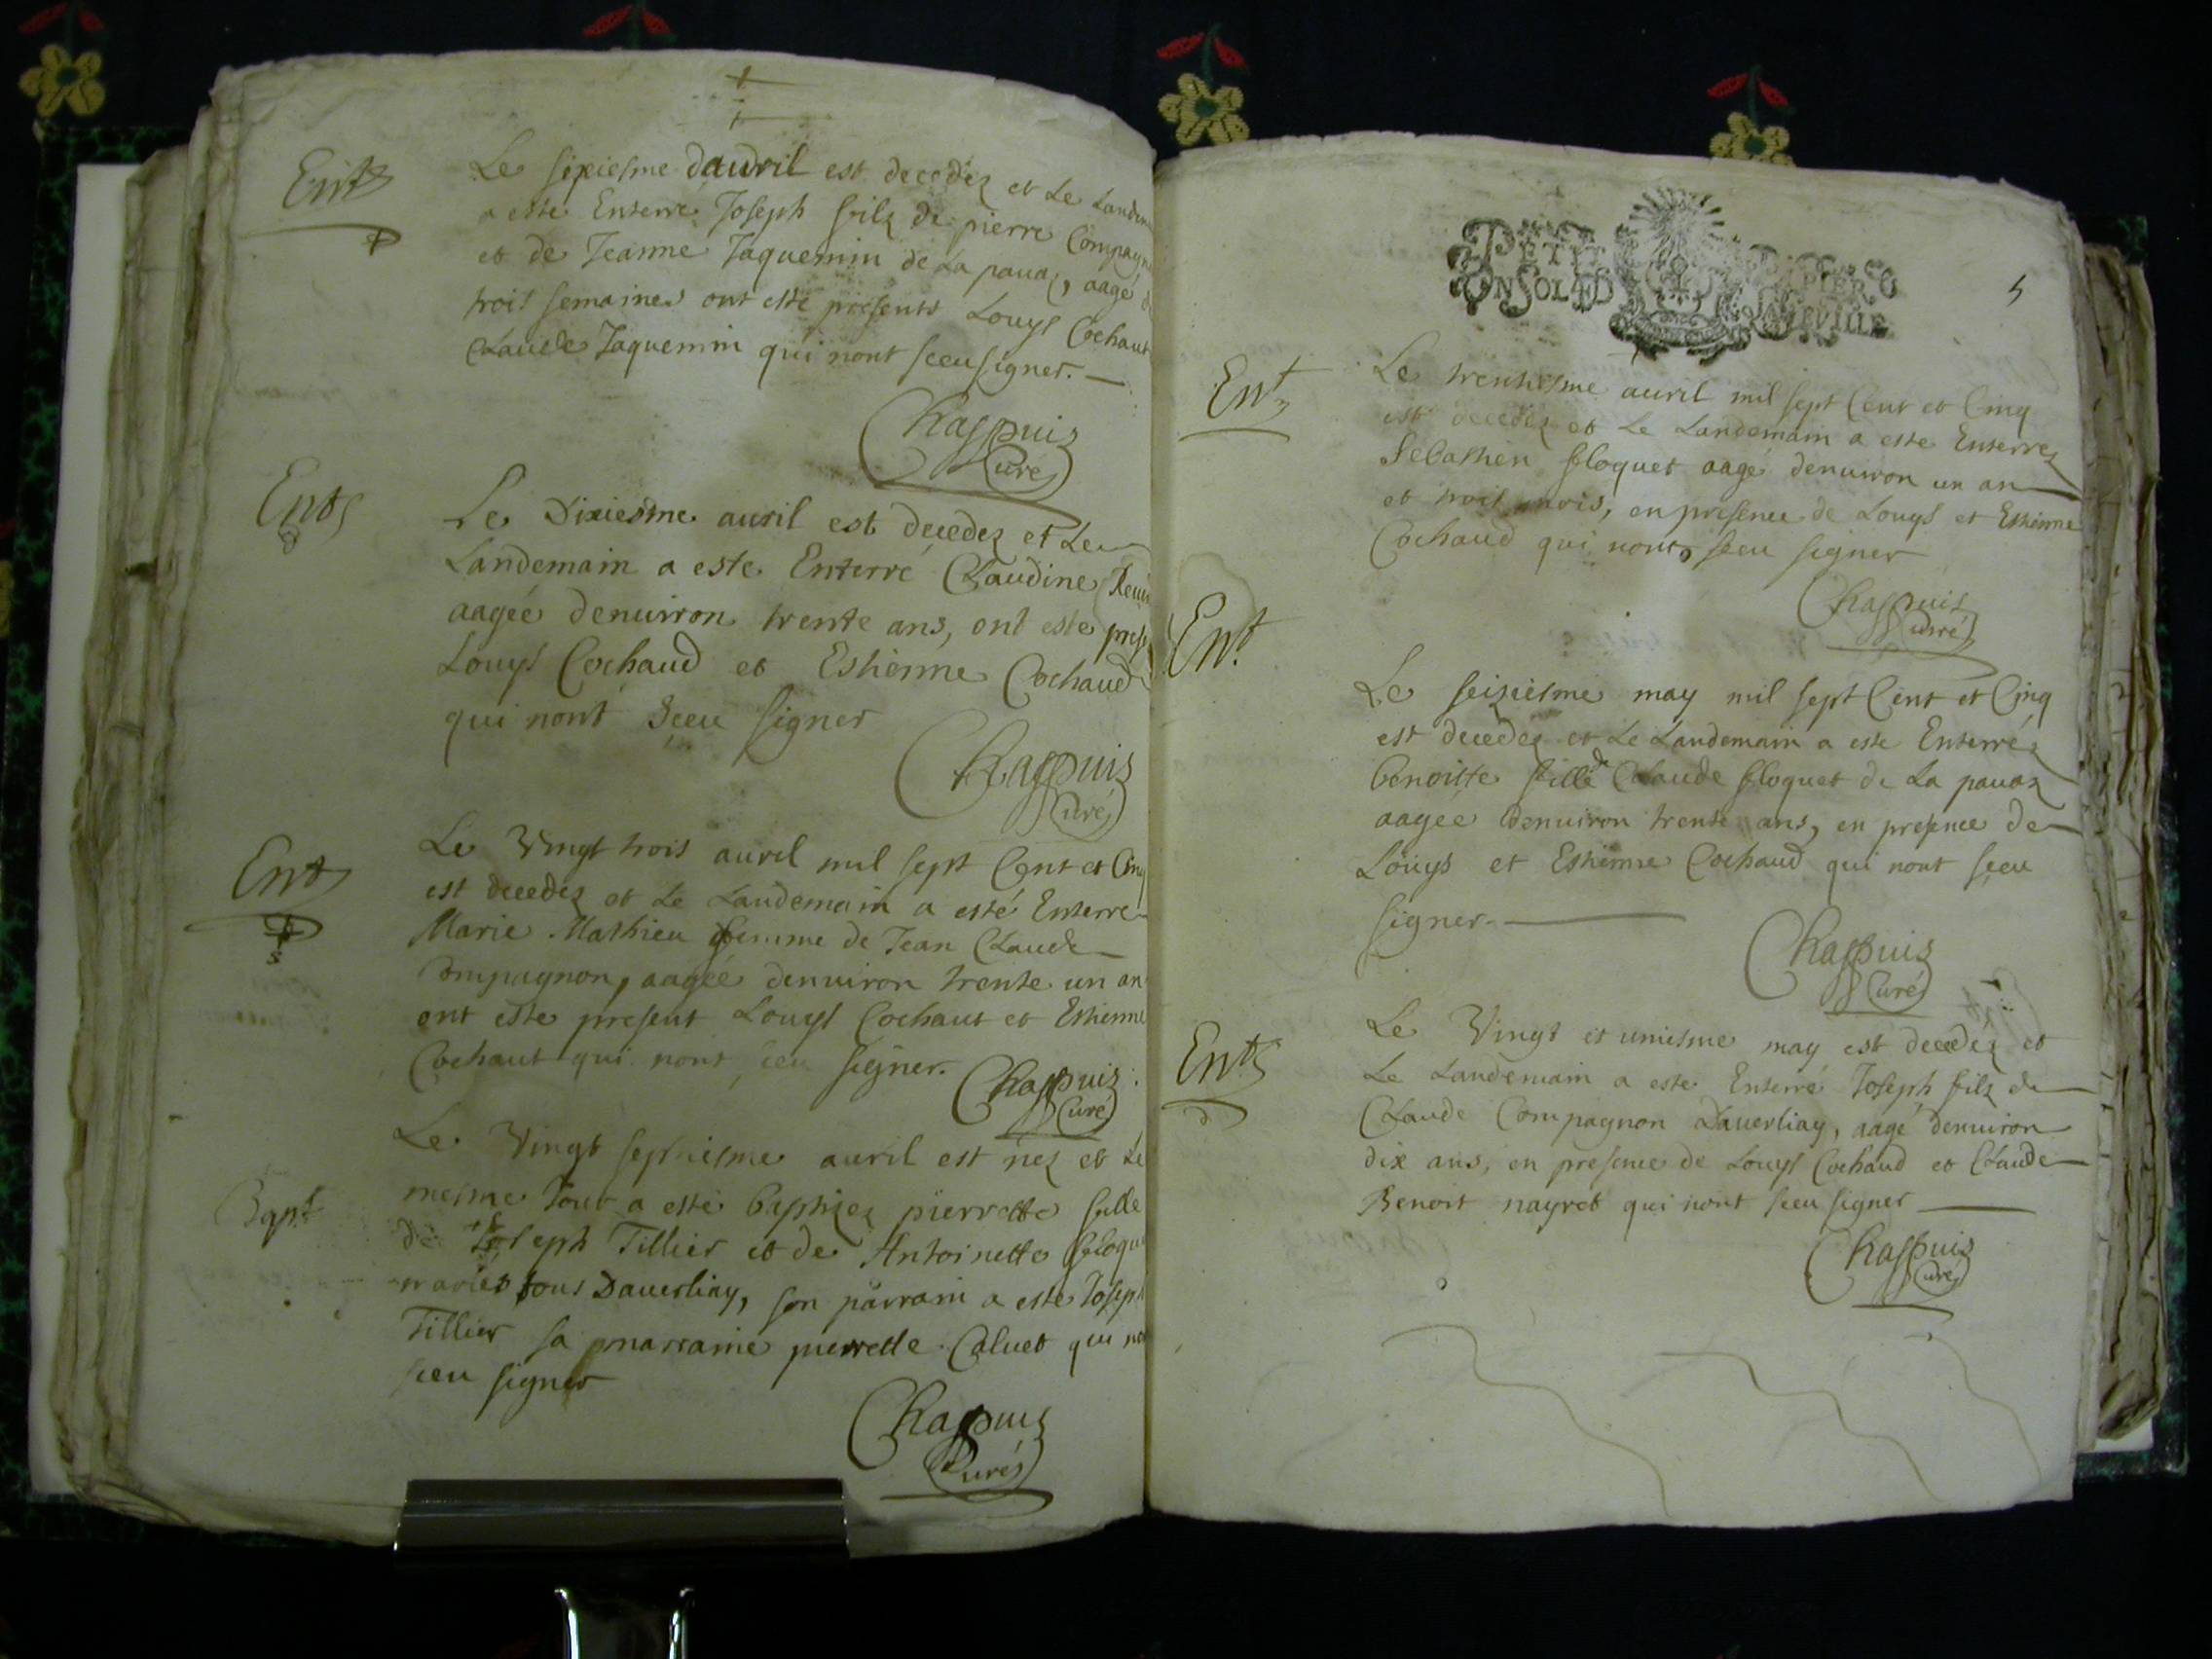 Entt
Le sixiesme dauvril est decedez et Le
a este Enterre Joseph filz de pierre
et de Jeanne Jaquemin de La pauaz, aagé
trois semaines ont esté presents Louys Cochaut
Claude Jaquemin qui nont sceu signer.
Chappuis
Curé
Ent
Le Dixiesme auril est decedez et Le
Landemain a este Enterré Claudine
aagée denuiron trente ans, ont este
Louys Cochaud et Estienne Cochaud
qui nont sceu signer
Chappuis
Curé
Ent
Le Vingt trois auril mil sept Cent et Cinq
est decedez et Le Landemain a esté Enterré
Marie Mathieu femme de Jean Claude
Compagnon, aagée denuiron trente un an
ont este present Louys Cochaut et Estienne
Cochaut qui nont sceu signer.
Chappuis
Curé
Le Vingt septiesme auril est nez et Le
Bapt
mesme Jour a esté baptizez pierrette fille
de Joseph Tillier et de Antoinette
mariés sous Dauerliay, son parrain a este Joseph
Tillier sa marraine pierrette Caluet qui
sceu signer
Chappuis
Curé
PETIT PAPIER
UN SOL 4 D LA FEUILLE
5
Ent
Le trentiesme auril mil sept Cent et Cinq
est decedez et Le Landemain a este Enterrez
Sebastien floquet aagé denuiron un an
et trois mois, en presence de Louys et Estienne
Cochaud qui nont sceu signer
Chappuis
Curé
Ent
Le seiziesme may mil sept Cent et Cinq
est decedez et Le Landemain a este Enterréz
benoiste fille de Claude floquet de La pauaz
aagée denuiron trente ans, en presence de
Louys et Estienne Cochaud qui nont sceu
signer.
Chappuis
Curé
Ent
Le Vingt et uniesme may est decedéz et
Le Landemain a este Enterré Joseph filz de
Claude Compagnon Dauerliay, aagé denuiron
dix ans, en presence de Louys Cochaud et Claude
Benoit nayret qui nont sceu signer
Chappuis
Curé